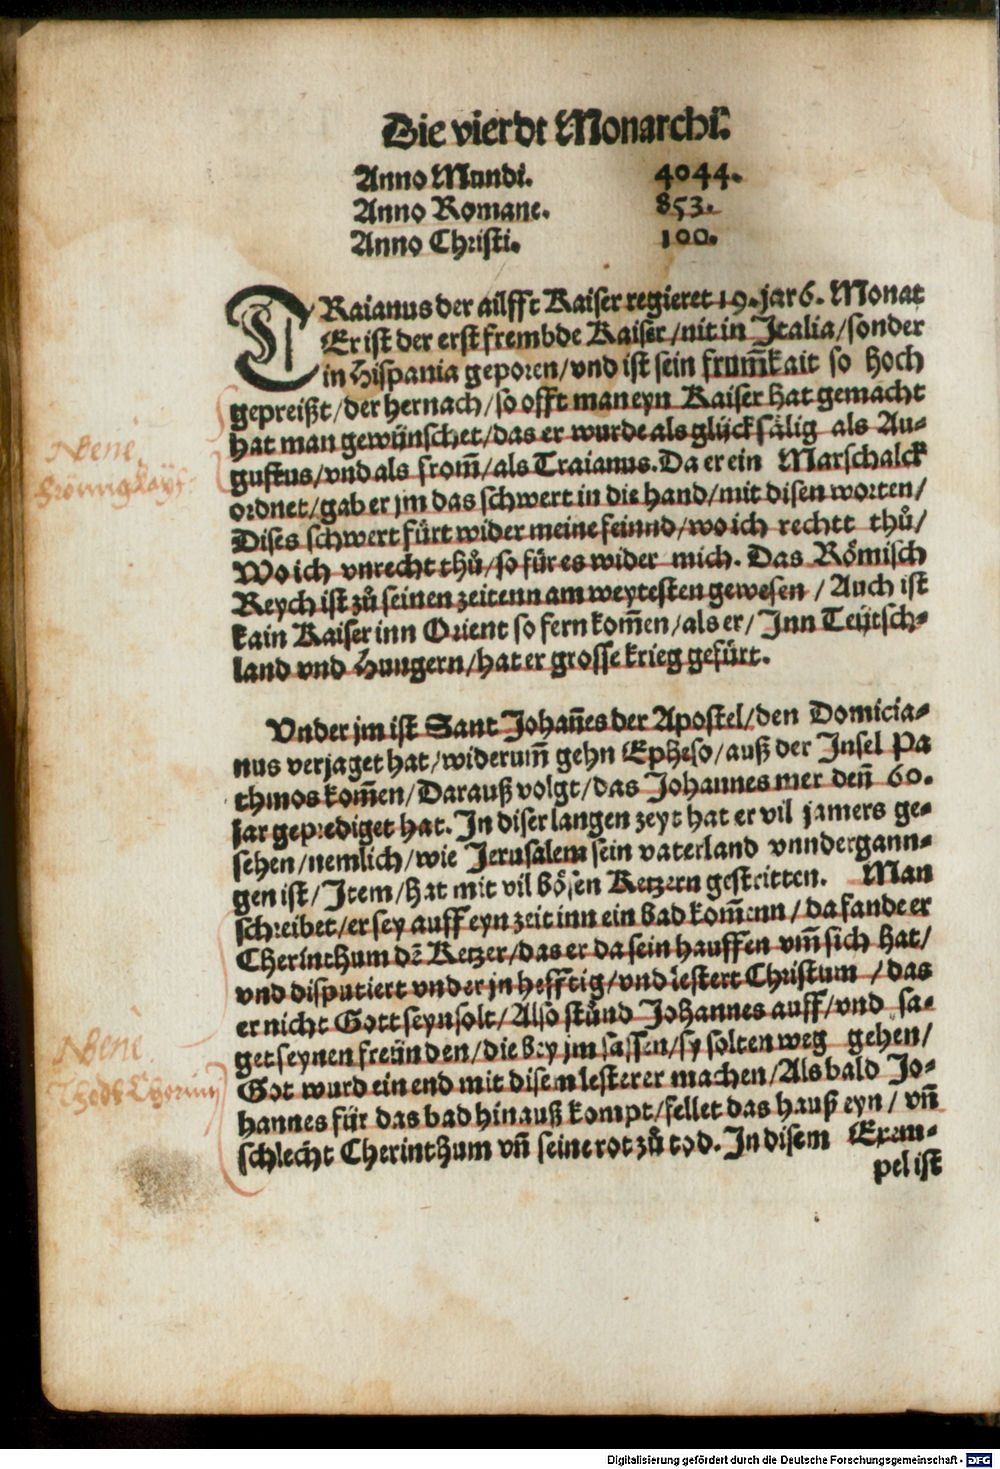 Die vierdt Monarchi.
Anno Mundi. 4044.
Anno Romane. 853.
Anno Christi. 100.
TRaianus der ailfft Kaiser regieret 19. jar 6. Monat
Er ist der erst frembde Kaiser/nit in Italia/sonder
in Hispania geporen/vnd ist sein frum̄kait so hoch
gepreißt/der hernach/so offt man eyn Kaiser hat gemacht
hat man gewünschet/das er wurde als glücksälig als Au⸗
gustus/vnd als from̄/als Traianus. Da er ein Marschalck
ordnet/gab er jm das schwert in die hand/mit disen worten/
Dises schwert fürt wider meine feinnd/wo ich rechtt thů/
Wo ich vnrecht thů/so für es wider mich. Das Römisch
Reych ist zů seinen zeitenn am weytesten gewesen/Auch ist
kain Kaiser inn Orient so fern kom̄en/als er/Inn Teütsch⸗
land vnd Hungern/hat er grosse krieg gefürt.
Vnder jm ist Sant Johan̄es der Apostel/den Domicia⸗
nus verjaget hat/widerum̄ gehn Epheso/auß der Insel Pa
thmos kom̄en/Darauß volgt/das Johannes mer den̄ 60.
jar geprediget hat. In diser langen zeyt hat er vil jamers ge⸗
sehen/nemlich/wie Jerusalem sein vaterland vnndergann⸗
gen ist/Item/hat mit vil bösen Ketzern gestritten. Man
schreibet/er sey auff eyn zeit inn ein bad kom̄enn/da fande er
Cherinthum dē Ketzer/das er da sein hauffen vm̄ sich hat/
vnd disputiert vnder jn hefftig/vnd lestert Christum/das
er nicht Gott seyn solt/Also stůnd Johannes auff/vnd sa⸗
get seynen freünden/die bey jm sassen/sy solten weg gehen/
Got wurd ein end mit disem lesterer machen/Als bald Jo⸗
hannes für das bad hinauß kompt/fellet das hauß eyn/vn̄
schlecht Cherinthum vn̄ seine rot zů tod. In disem Exem⸗
pel ist
NBene
NBene
Digitalisierung gefördert durch die Deutsche Forschungsgemeinschaft - DFG